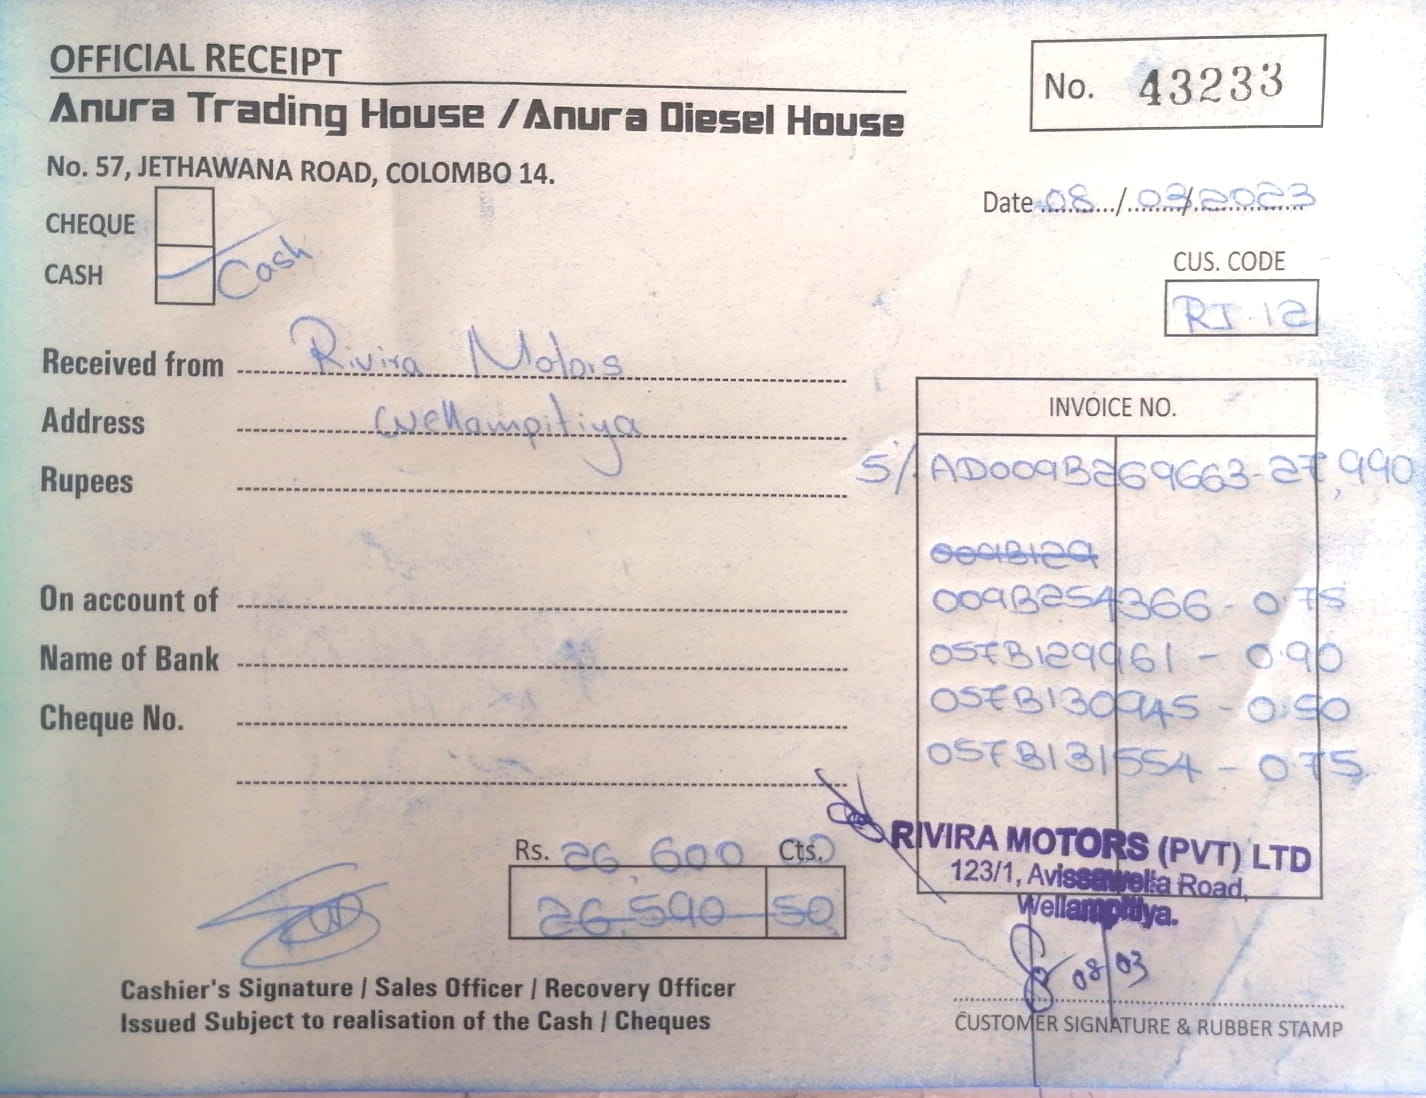 OFFICIAL RECEIPT
No. 43233
Anura Trading House / Anura Diesel House
No. 57, JETHAWANA ROAD, COLOMBO 14.
Date 08/03/2023
CHEQUE
CASH Cash
CUS. CODE
RI-12
Received from Rivira Motors
Address Wellampitiya
Rupees
On account of
Name of Bank
Cheque No.
INVOICE NO.
5/. AD009B269663-27,990
009B129
009B254366 - 0.75
057B129961 - 0.90
057B130945 - 0.50
057B131554 - 0.75
Rs. 26,600 Cts. 00
26,590 50
RIVIRA MOTORS (PVT) LTD
123/1, Avissawella Road,
Wellampitiya.
08/03
Cashier's Signature / Sales Officer / Recovery Officer
Issued Subject to realisation of the Cash / Cheques
CUSTOMER SIGNATURE & RUBBER STAMP